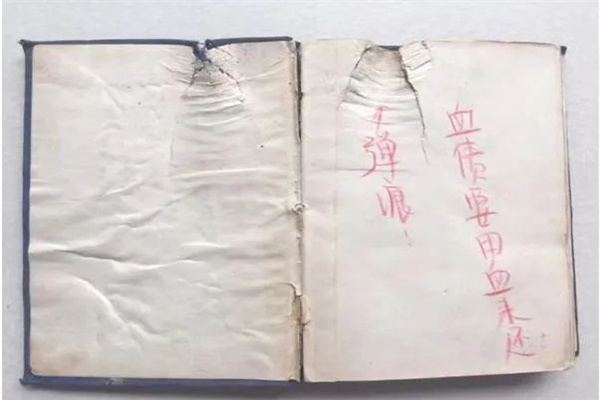 血债要用血来还
↑弹痕！